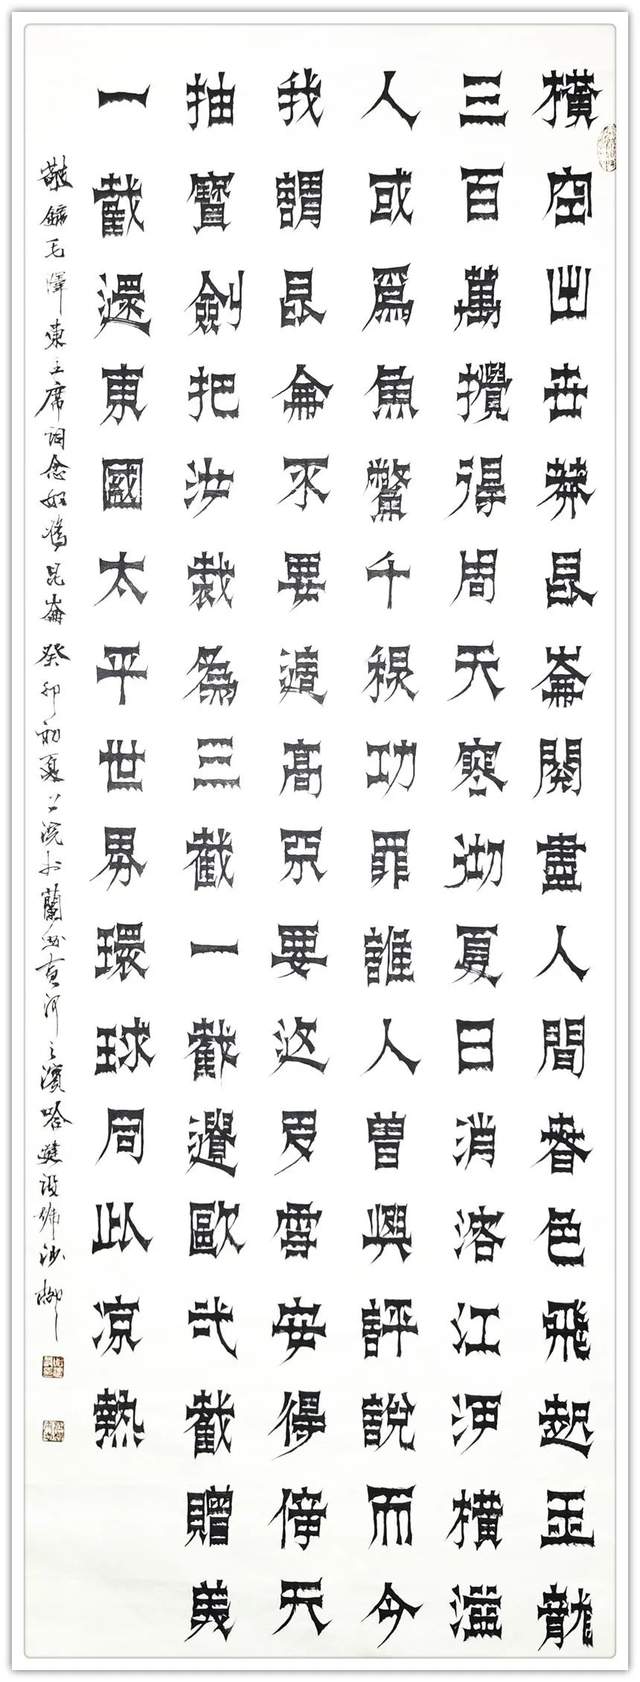 橫空出世莽昆崙閱盡人間春色飛起玉龍
三百萬攪得周天寒彻夏日消溶江河橫溢
人或為魚鱉千秋功罪誰人曾與評說而今
我謂昆侖不要這高不要這多雪安得倚天
抽寶劍把汝裁為三截一截遺歐弌截贈美
一截還東國太平世界環球同此凉熱
敬錄毛澤東主席詞念奴嬌昆崙 癸卯初夏上浣於蘭州黃河之濱哈建設師沙柳